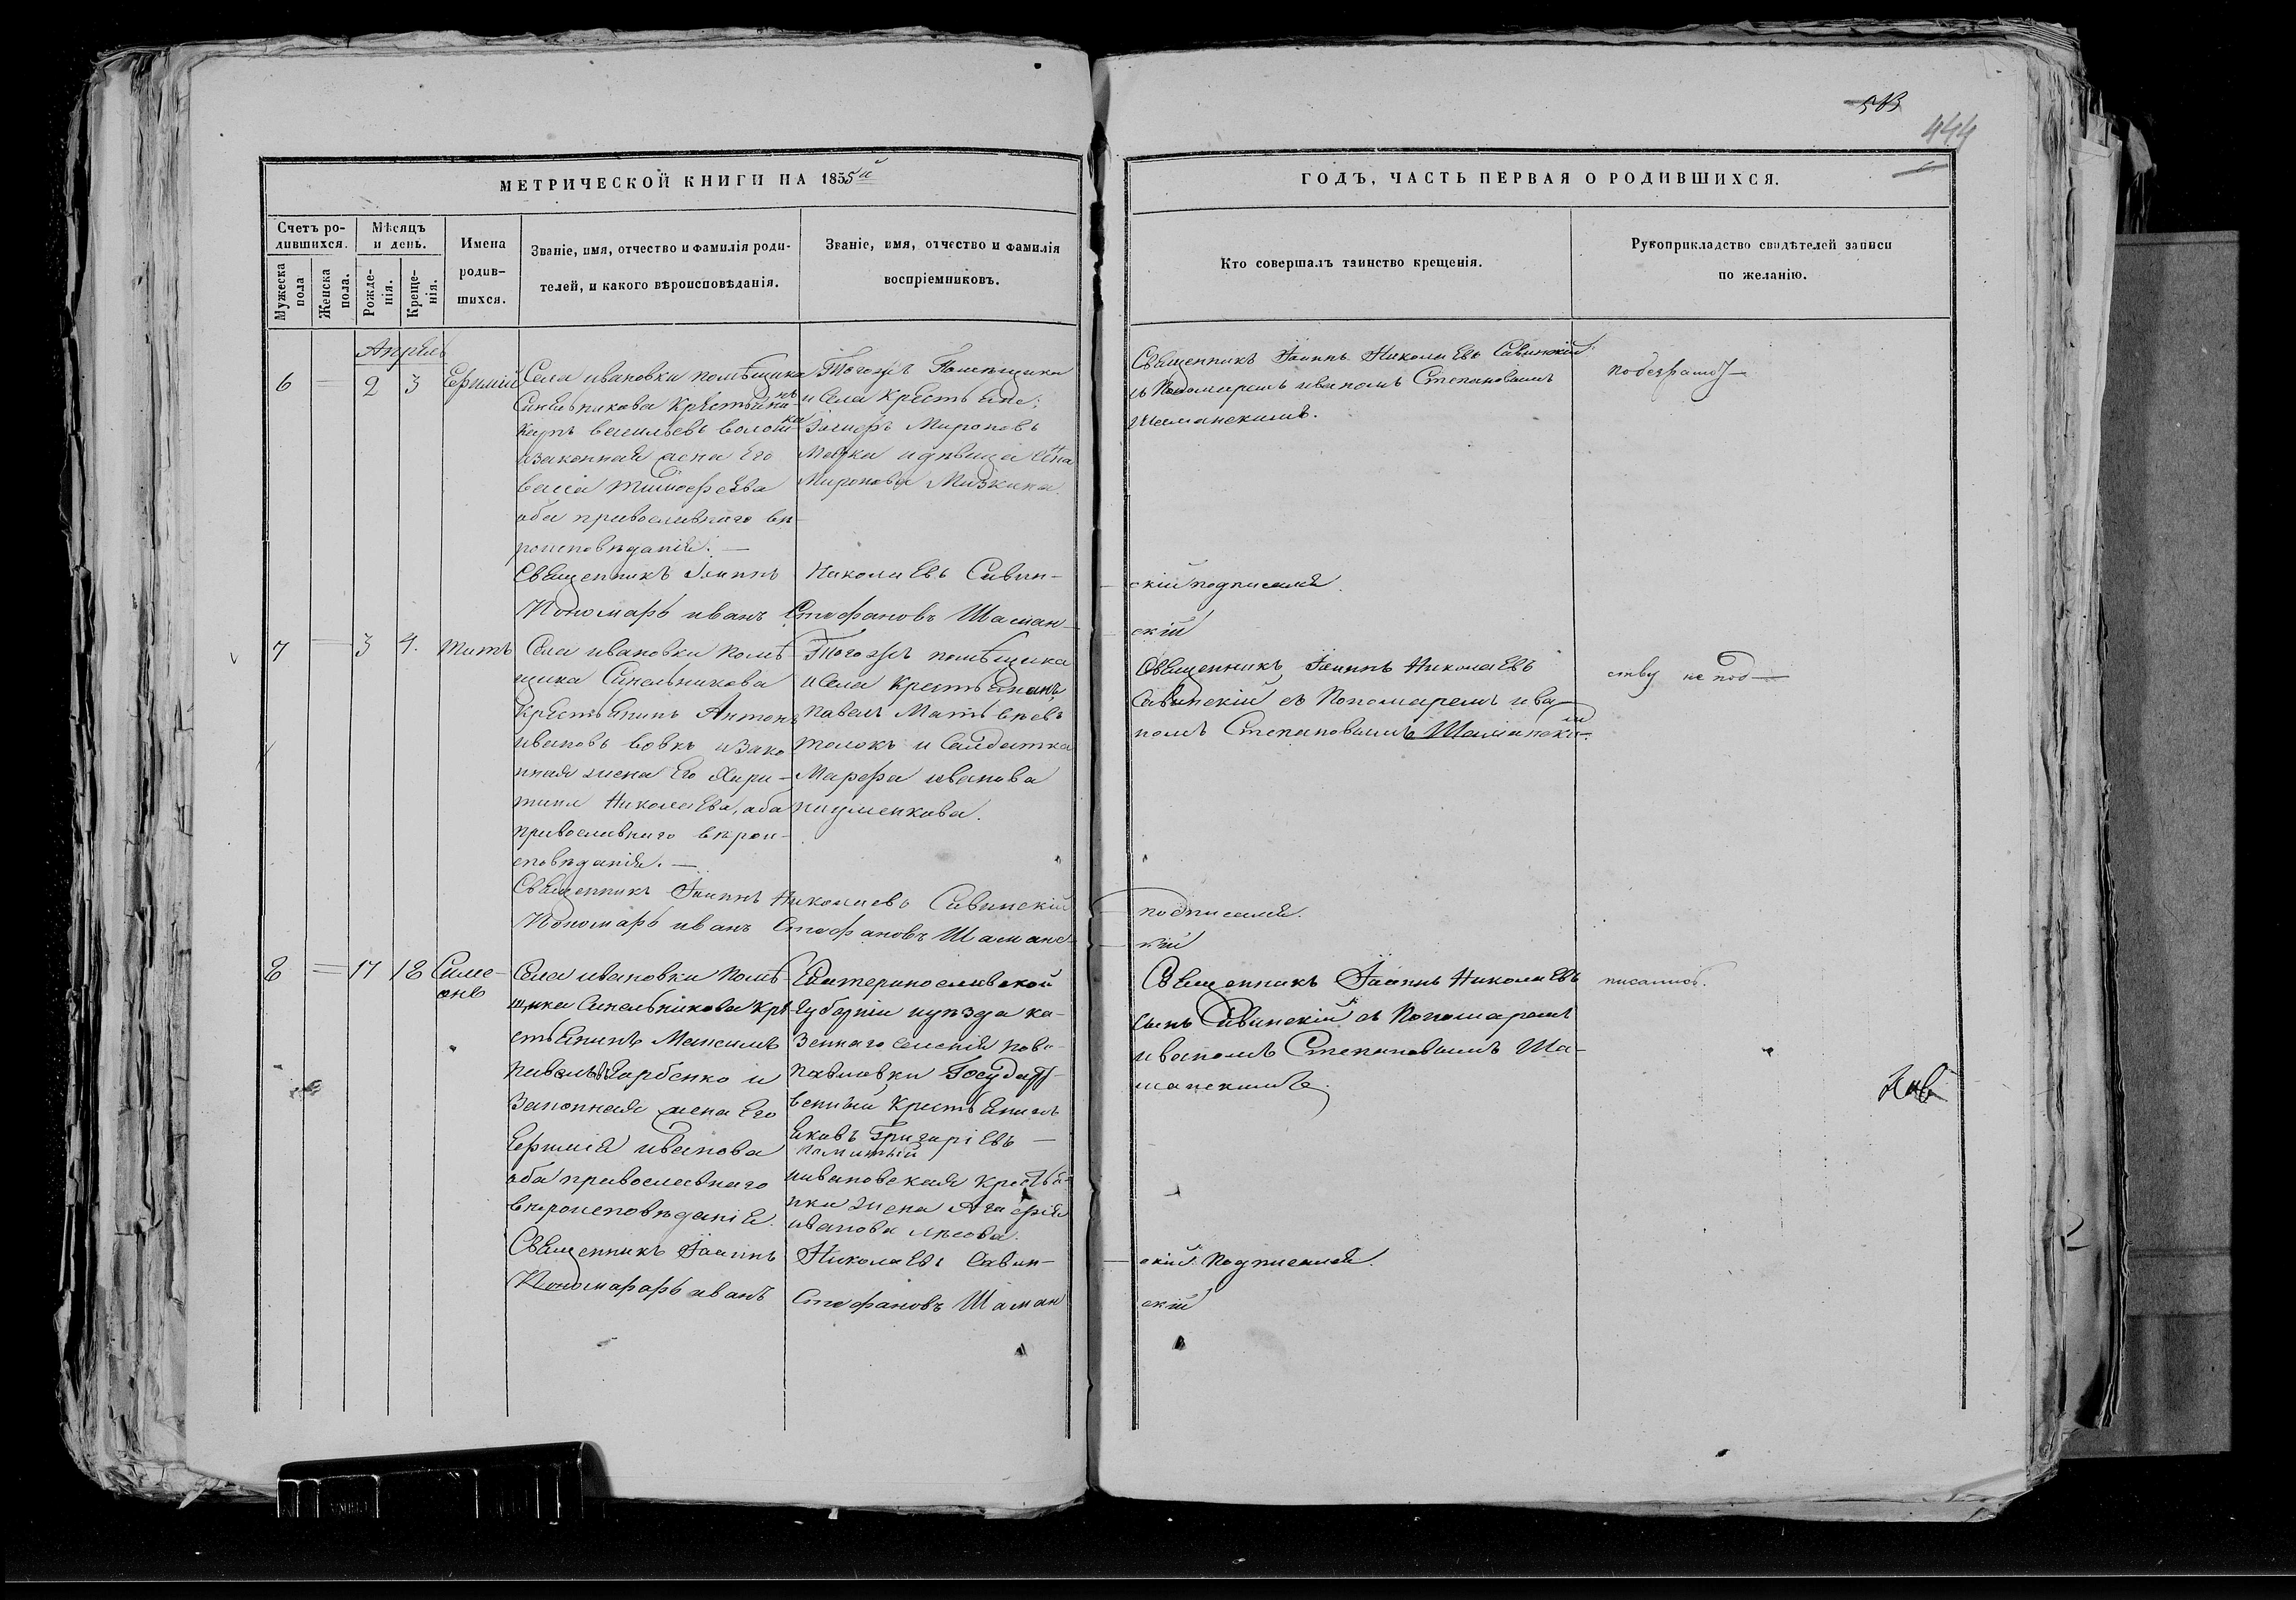 513
444
МЕТРИЧЕСКОЙ КНИГИ НА 1855й
ГОДЪ, ЧАСТЬ ПЕРВАЯ О РОДИВШИХСЯ.
Счетъ ро-
дившихся.
Мужеска
пола
Женска
пола.
Мѣсяцъ
и день.
Рожде-
нія.
Креще-
нія.
Имена
родив-
шихся.
Званіе, имя, отчество и фамилія роди-
телей, и какого вѣроисповѣданія.
Званіе, имя, отчество и фамилія
воспріемниковъ.
Кто совершалъ таинство крещенія.
Рукоприкладство свидѣтелей записи
по желанію.
Апрель
6
2
3
Ефимій
Села ивановки помѣщика
Синельникова Крестьянинъ
васильевъ
изаконная жена Его
Тимофеева
оба православнаго вѣ-
роисповѣданія.
Тогожъ Помещика
и Села Крестьяне:
Мироновъ
идѣвица
Миронова
Священникъ Іоаннъ Николаевъ Савинскій
съ Пономаремъ иваномъ Степановымъ
Шаманскимъ.
Священникъ Іоаннъ Николаевъ Савин-
скій подписался.
Пономарь иванъ Стефановъ Шаман-
скій
7
3
4.
Титъ
Села ивановки Помѣ-
щика Синельникова
Крестьянинъ Антонъ
ивановъ вовкъ изако
нная жена Его Хари-
тина Николаева, оба
православнаго вѣрои-
сповѣданія.
Тогожъ помѣщика
иСела Крестьянинъ
павелъ Матвѣевъ
толокъ и Салдатка
Марфа иванова
науменкова.
Священникъ Іоаннъ Николаевъ
Савинскій съ Пономаремъ ива-
номъ Степановымъ Шамански-
мъ
ству не под-
Священникъ Іоаннъ Николаевъ Савинскій
подписался.
Пономарь иванъ Стефановъ Шаманс-
кій
8
17
18
Симе-
онъ
Села ивановки Помѣ-
щика Синельникова Кре-
стьянинъ Максимъ
Павловъ Гарбенко и
Законная жена Его
Ефимія иванова
оба православнаго
вѣроисповѣданія.
Екатеринославской
Губерніи иуѣзда ка-
зеннаго селенія ново-
павловки Государст-
венный Крестьянинъ
Яковъ Григоріевъ
иивановская Крестья-
нка жена Агафія
иванова лѣсова.
Священникъ Іоаннъ Николаевъ
сынъ Савинскій съ Пономаремъ
иваномъ Степановымъ Ша-
манскимъ.
писалиь.
Священникъ Іоаннъ Николаевъ Савин-
скій Подписался.
Пономарарь иванъ Стефановъ Шаман
скій